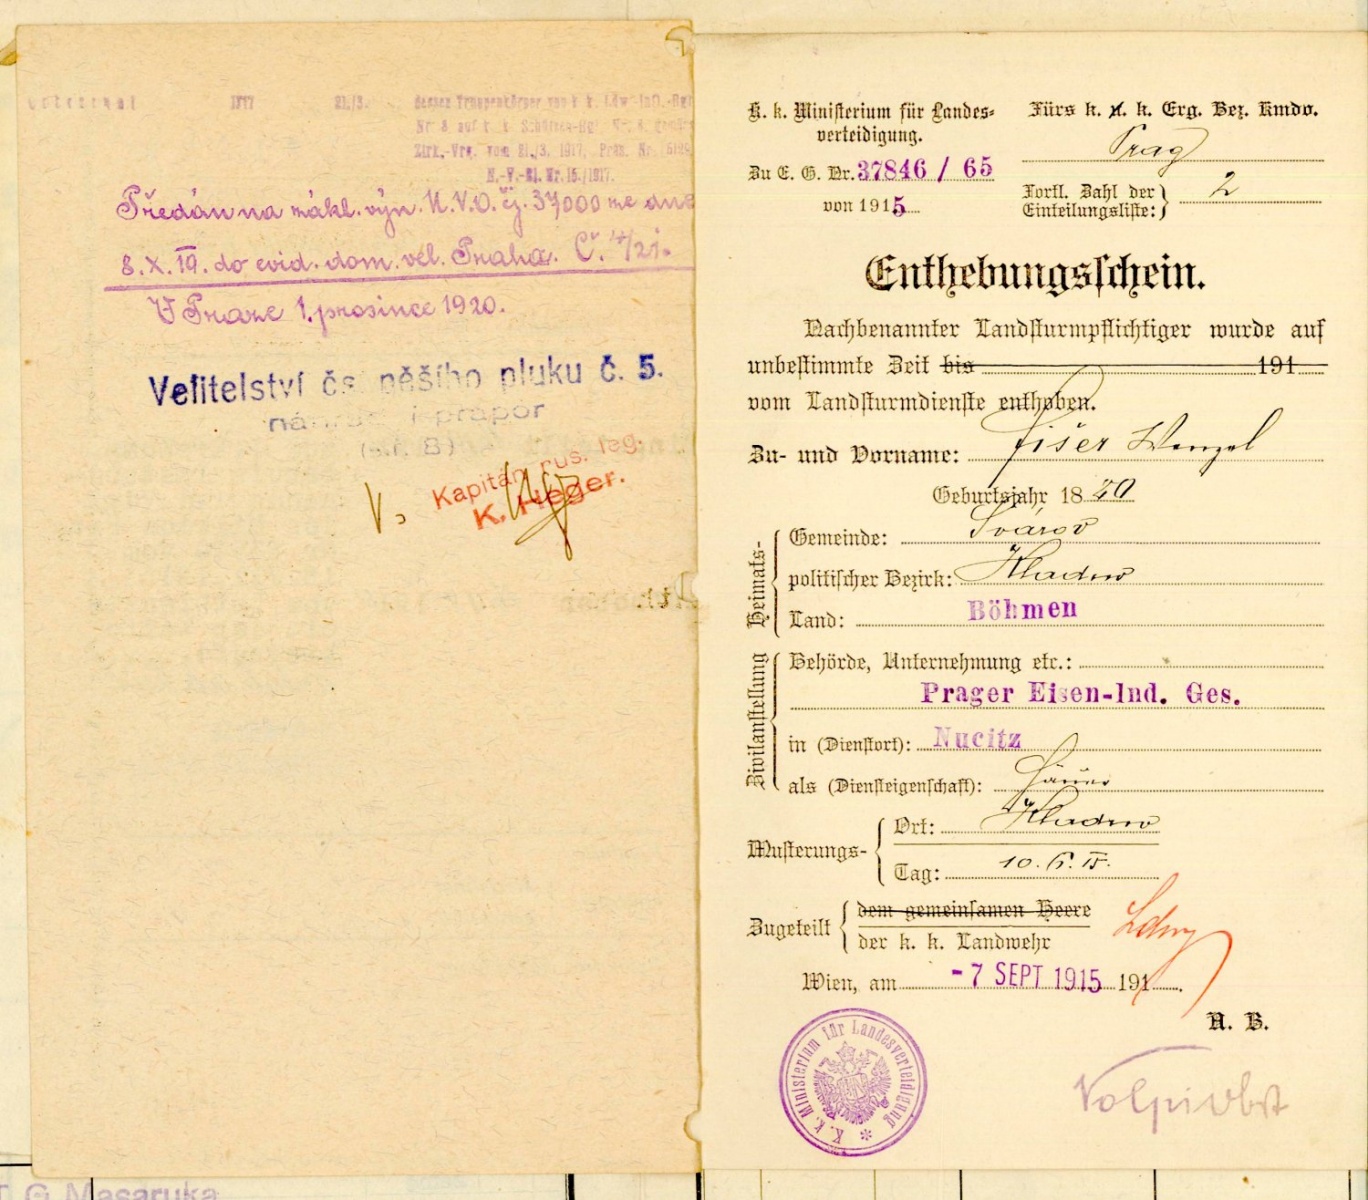 1917 21./3. dessen Truppenkörper von k. k. Ldw.-Inft.-Rgt
Nr. 8 auf k. k. Schützen-Rgt. Nr. 8
Zirk.-Vrg. vom 21./3. 1917, Präs. Nr.
N.-V.-Bl. Nr. 15./1917.
Předán na zákl. výn. M.V.O. čj. 37000 ze dne
8. X. 19. do evid. dom. vel. Praha. Č. 4/21.
V Praze 1. prosince 1920.
Velitelství čs. pěšího pluku č. 5.
náhradní prapor
Kapitán rus. leg.
K. Heger.
K. k. Ministerium für Landes-
verteidigung.
Zu E. G. Nr. 37846 / 65
von 1915
Fürs k. u. k. Erg. Bez. Kmdo.
Prag
Fortl. Zahl der
Einteilungsliste: 2
Enthebungsschein.
Nachbenannter Landsturmpflichtiger wurde auf
unbestimmte Zeit bis 191
vom Landsturmdienste enthoben.
Zu- und Vorname: Fišer Wenzel
Geburtsjahr 18 70
Heimats-
Gemeinde: Svárov
politischer Bezirk: Kladno
Land: Böhmen
Zivilanstellung
Behörde, Unternehmung etc.:
Prager Eisen-Ind. Ges.
in (Dienstort): Nucitz
als (Diensteigenschaft): Häuer
Musterungs-
Ort: Kladno
Tag: 10. 6. 15.
Zugeteilt
dem gemeinsamen Heere
der k. k. Landwehr
Ldw
Wien, am -7 SEPT 1915 191
A. B.
K. k. Ministerium für Landesverteidigung *
Volpi Obst
T. G. Masaryka